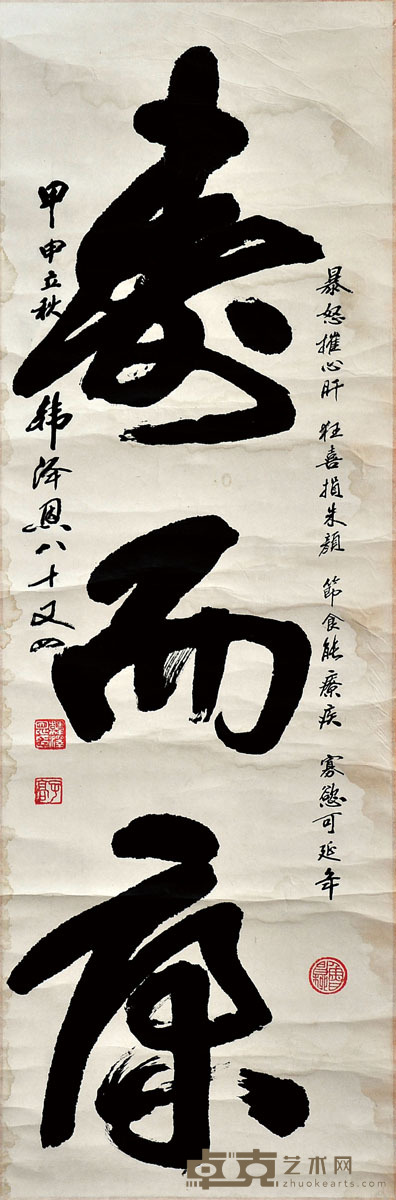 暴怒摧心肝 狂喜損朱顏 節食能療疾 寡慾可延年
壽而康
甲申立秋 韩泽恩八十又四
卓克艺术网
www.zhuokearts.com